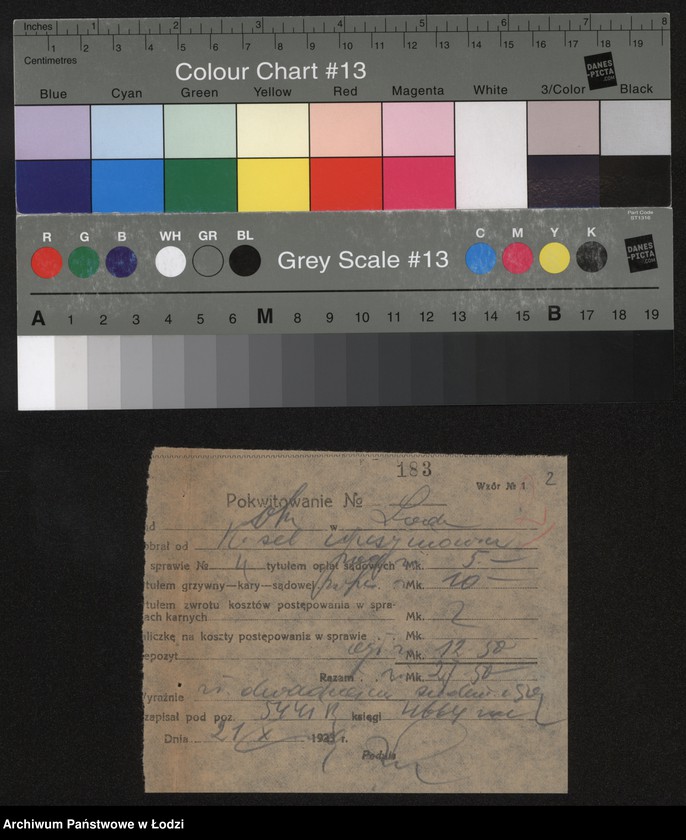 Inches 1 2 3 4 5 6 7 8
1 2 3 4 5 6 7 8 9 10 11 12 13 14 15 16 17 18 19
Centimetres
Colour Chart #13
DANES
-PICTA
.COM
Blue Cyan Green Yellow Red Magenta White 3/Color Black
Part Code
ST1316
R G B WH GR BL
Grey Scale #13
C M Y K
DANES
-PICTA
.COM
A 1 2 3 4 5 6 M 8 9 10 11 12 13 14 15 B 17 18 19
183
Wzór № 1 2
Pokwitowanie №
w
brał od
sprawie № 4 tytułem opłat sądowych Mk. 5.—
tułem grzywny—kary—sądowej Mk. 10—
tułem zwrotu kosztów postępowania w spra-
ach karnych Mk. 2
liczkę na koszty postępowania w sprawie . . Mk.
epozyt Mk. 12 50
Razem Mk. 50
yraźnie dwadzieścia siedem
zapisał pod poz. księgi
Dnia 21 X 192 r.
Podpis
Archiwum Państwowe w Łodzi